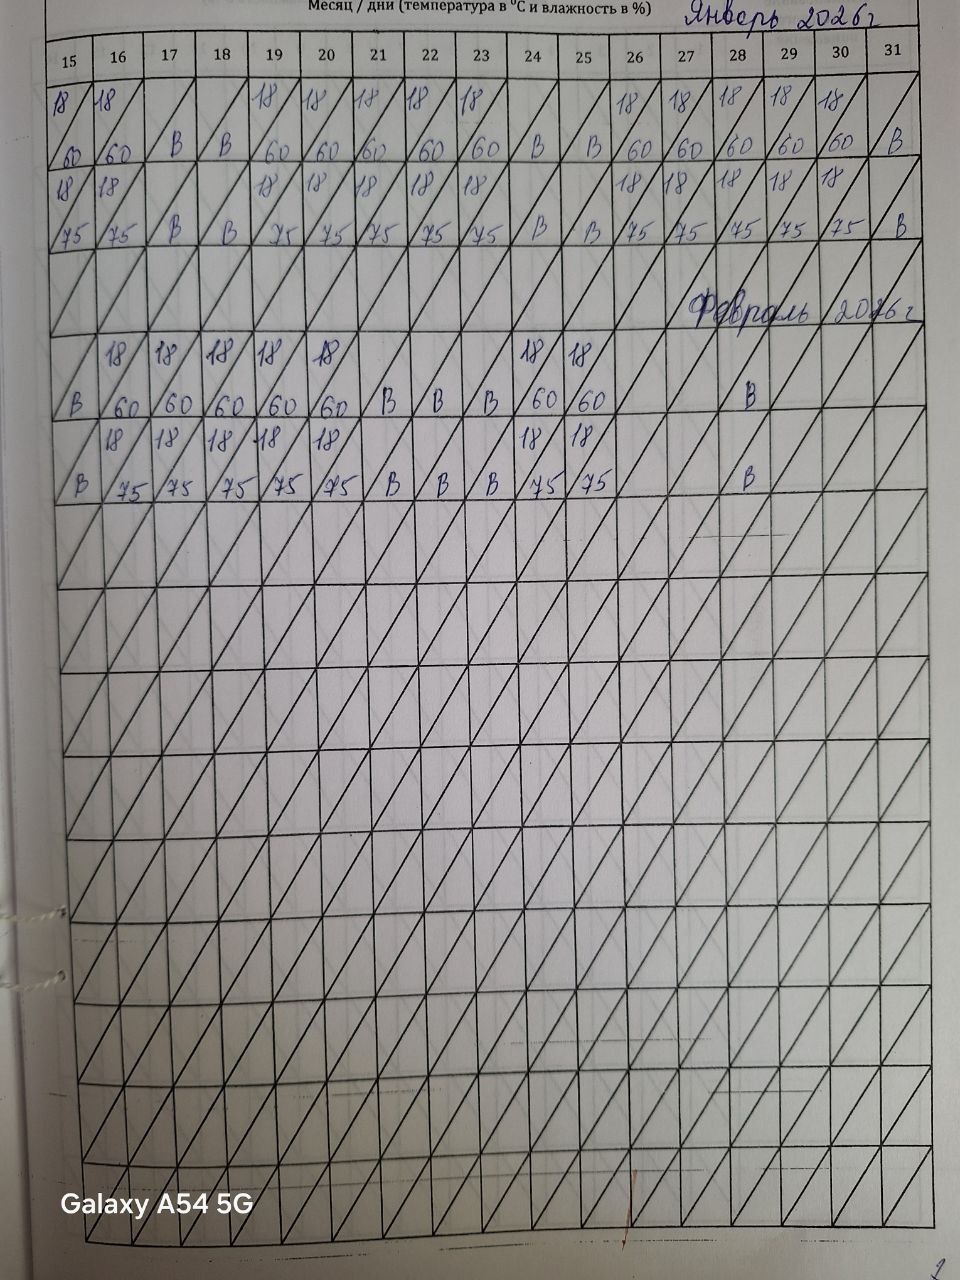 Месяц / дни (температура в °C и влажность в %) Январь 2026г
15 16 17 18 19 20 21 22 23 24 25 26 27 28 29 30 31
18 18 18 18 18 18 18 18 18 18 18 18
60 60 В В 60 60 60 60 60 В В 60 60 60 60 60 В
18 18 18 18 18 18 18 18 18 18 18 18
75 75 В В 75 75 75 75 75 В В 75 75 75 75 75 В
Февраль 2026г
18 18 18 18 18 18 18
В 60 60 60 60 60 В В В 60 60 В
18 18 18 18 18 18 18
В 75 75 75 75 75 В В В 75 75 В
Galaxy A54 5G